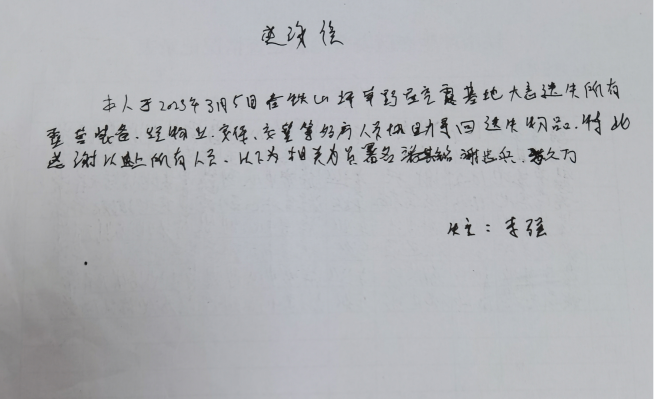 感谢信
本人于2023年3月5日在铁山坪草野露营基地大意遗失所有
露营装备、经物业、安保、交警等好府人员协助寻回遗失物品.特此
感谢以上所有人员、以下为相关为员署名 谢长兵、
失主：李强